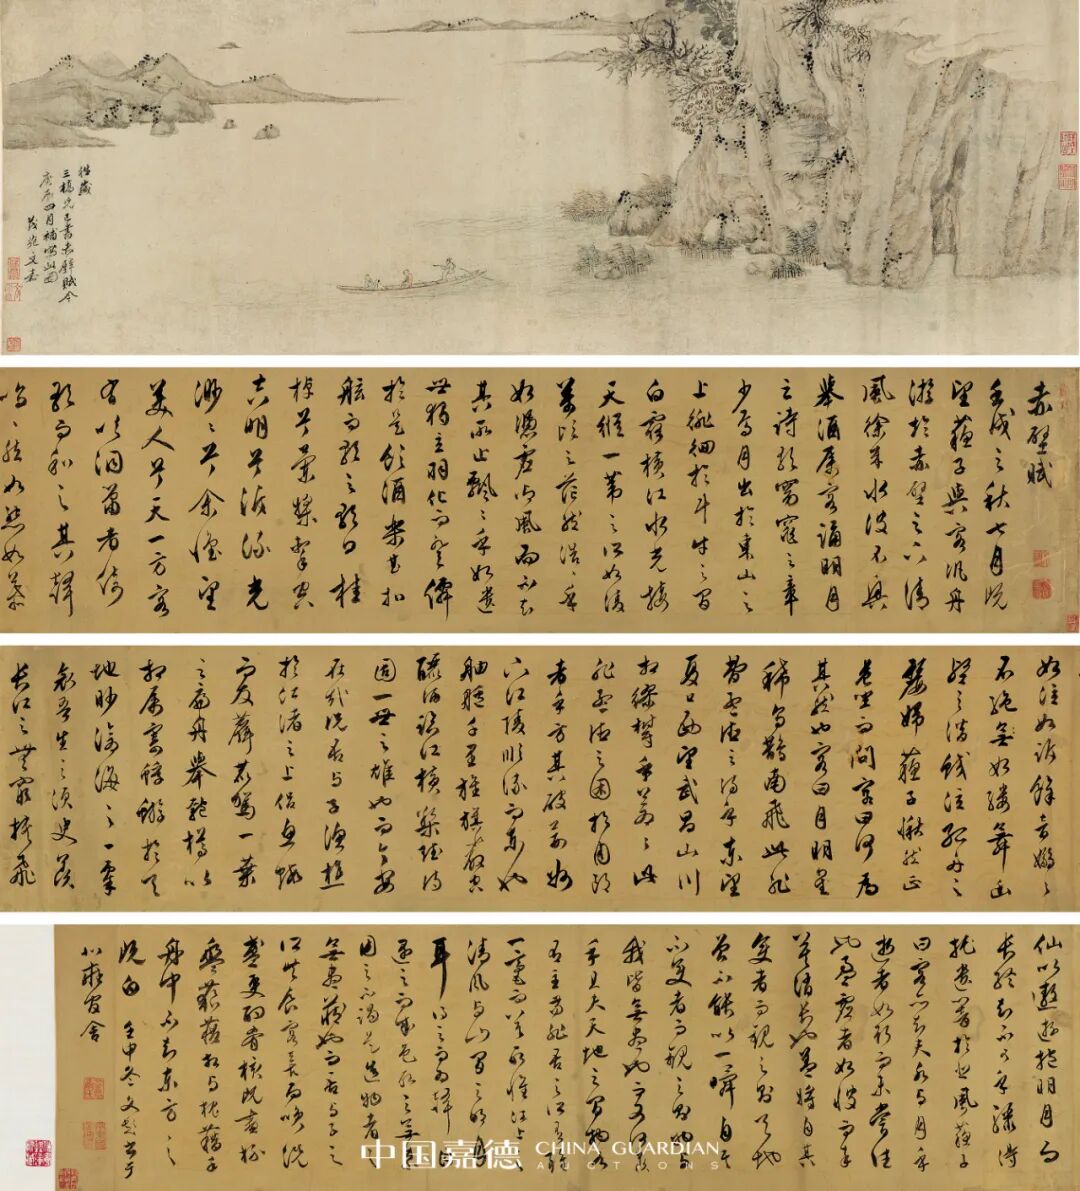 往歲
三橋兄已書赤壁賦今
庚辰四月補寫此圖
茂苑文嘉
赤壁賦
壬戌之秋七月既
望蘇子與客汎舟
游於赤壁之下清
風徐來水波不興
舉酒屬客誦明月
之詩歌窈窕之章
少焉月出於東山之
上徘徊於斗牛之間
白露橫江水光接
天縱一葦之所如凌
萬頃之茫然浩浩乎
如憑虛御風而不知
其所止飄飄乎如遺
世獨立羽化而登僊
於是飲酒樂甚扣
舷而歌之歌曰桂
棹兮蘭槳擊空
明兮泝流光
渺渺兮余懷望
美人兮天一方客
有吹洞簫者倚
歌而和之其聲
嗚嗚然如怨如慕
如泣如訴餘音嫋嫋
不絕如縷舞幽
壑之潛蛟泣孤舟之
嫠婦蘇子愀然正
危坐而問客曰何為
其然也客曰月明星
稀烏鵲南飛此非
曹孟德之詩乎東望
夏口西望武昌山川
相繆鬱乎蒼蒼此
非孟德之困於周郎
者乎方其破荊州
下江陵順流而東也
舳艫千里旌旗蔽空
釃酒臨江橫槊賦詩
固一世之雄也而今安
在哉況吾與子漁樵
於江渚之上侶魚蝦
而友麋鹿駕一葉
之扁舟舉匏樽以
相屬寄蜉蝣於天
地眇滄海之一粟
哀吾生之須臾羨
長江之無窮挾飛
仙以遨遊抱明月而
長終知不可乎驟得
托遺響於悲風蘇子
曰客亦知夫水與月乎
逝者如斯而未嘗往
也盈虛者如彼而卒
莫消長也蓋將自其
變者而觀之則天地
曾不能以一瞬自其
不變者而觀之則物與
我皆無盡也而又何羨
乎且夫天地之間物各
有主苟非吾之所有雖
一毫而莫取惟江上之
清風與山間之明月
耳得之而為聲目
遇之而成色取之無禁
用之不竭是造物者之
無盡藏也而吾與子之
所共食客喜而笑洗
盞更酌肴核既盡杯
盤狼藉相與枕藉乎
舟中不知東方之
既白 壬申冬文彭書於
舍
中国嘉德 CHINA GUARDIAN
AUCTIONS